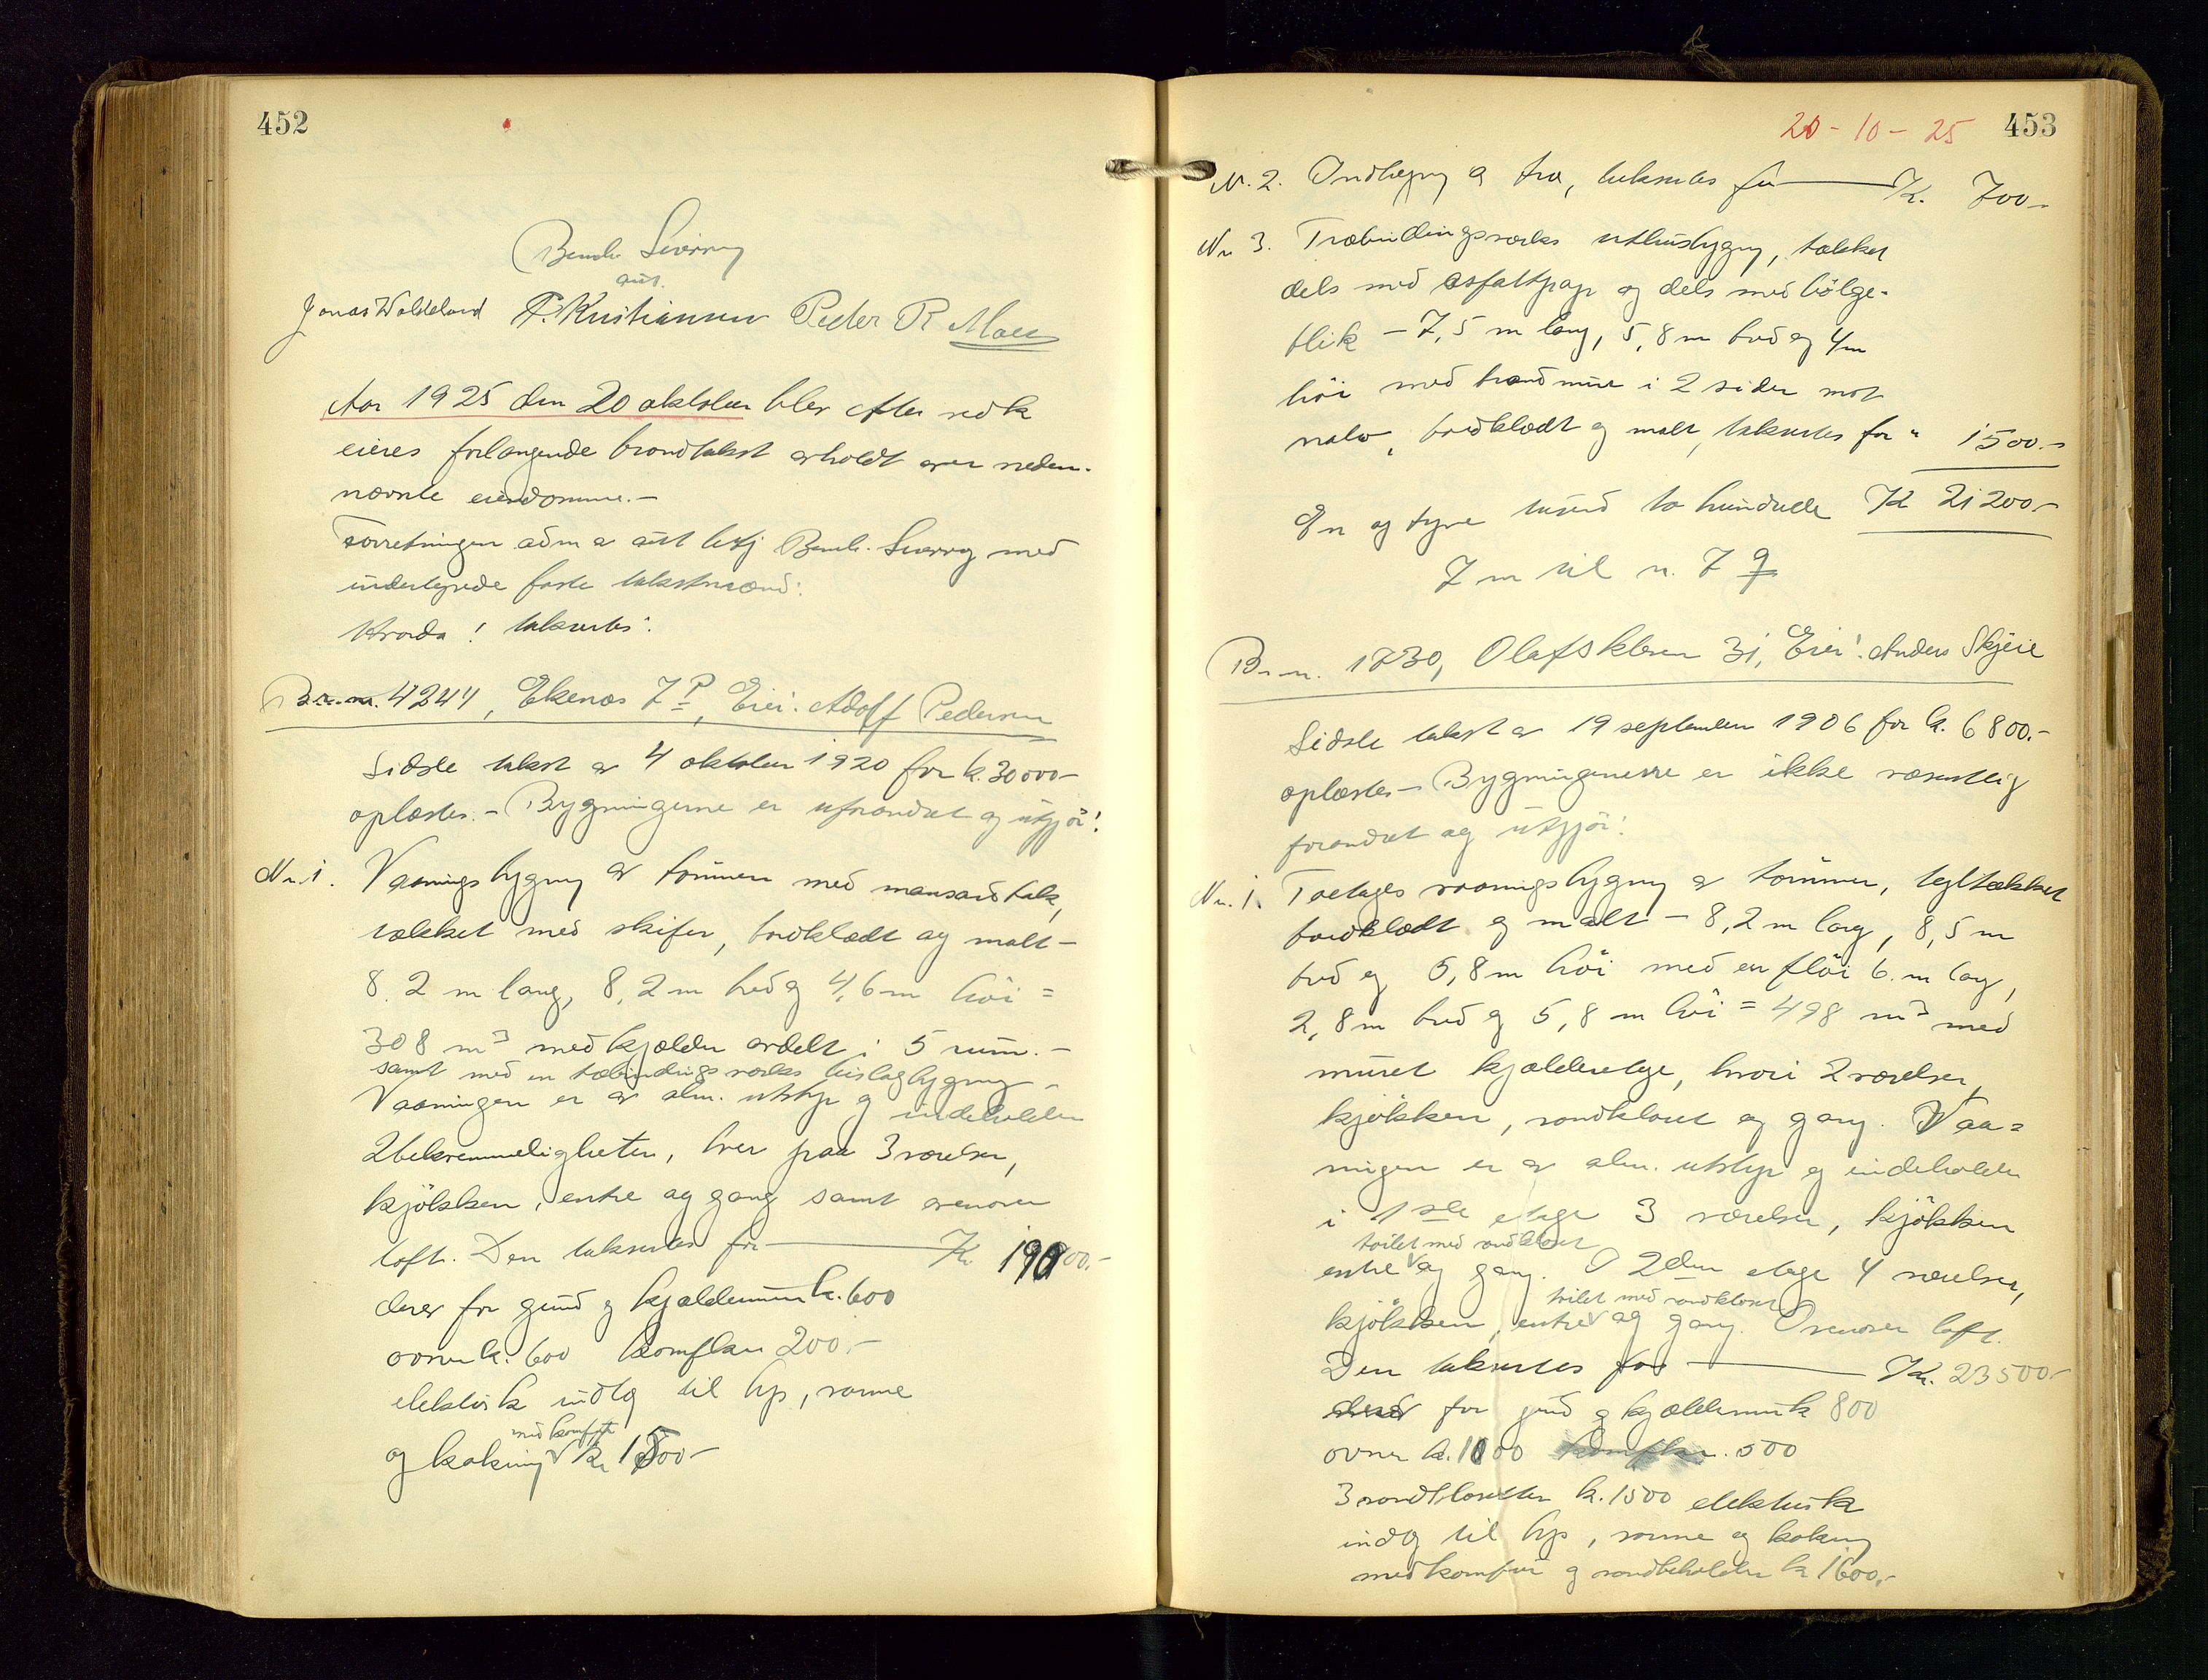 452
Bernh. Sverring
aut.
Jonas Waldeland P. Kristiansen Peder R Moen
Aar 1925 den 20 oktober blev efter vedk
eieres forlangende brandtakst avholdt over neden-
nævnte eiendomme.-
Forretningen adm av aut betj Bernh. Sverring med
undertegnede faste takstmænd:
Hvorda! taksertes:
Br. nr. 4244, Ekenæs 7P, Eier: Adolf Pedersen
Sidste takst av 4 oktober 1920 for k. 30000-
oplæstes.- Bygningerne er uforandret og utgjør!
Nr. 1. Vaaningsbygning av tømmer med mansardtak,
tækket med skifer, bordklædt og malt-
8.2 m lang, 8,2 m bred og 4,6 m høi =
308 m3 med kjælder avdelt i 5 rum.-
samt med en træbindingsverks bislagbygning-
Vaaningen er av alm. utstyr og indeholder
2 bekvemmeligheter, hver paa 3 værelser,
kjøkken, entre og gang samt ovenover
loft. Den taksertes for Kr. 19000.-
derav for grund og kjældermur k. 600
ovner k. 600 komfyr 200.-
elektrisk indlg til lys, varme
med komfyr
og kokning kr 1500-
20-10-25 453
Nr. 2. Indhegning av træ, taksertes for Kr. 700-
Nr 3. Træbindingsverks uthusbygning, tækket
dels med asfaltpap og dels med bølge-
blik - 7,5 m lang, 5,8 m bred og 4 m
høi med brandmur i 2 sider mot
nabo, bordklædt og malt, taksertes for " 1500.-
En og tyve tusind to hundrede Kr 21200.-
7 m til n. 7 q
Br. nr. 1730, Olafskleven 31, Eier: Anders Skjeie
Sidste takst av 19 september 1906 for k. 6800.-
oplæstes- Bygningerne er ikke væsentlig
forandret og utgjør!
Nr. 1. Toetages vaaningsbygning av tømmer, tegltækket
bordklædt og malt - 8,2 m lang, 8,5 m
bred og 5,8 m høi med en fløi 6. m lang,
2,8 m bred og 5,8 m høi = 498 m3 med
muret kjælderetage, hvori 2 værelser,
kjøkken, vandkloset og gang. Vaa=
ningen er av alm. utstyr og indeholder
i 1ste etage 3 værelser, kjøkken
toilet med vandkloset
entre og gang. I 2den etage 4 værelser,
toilet med vandkloset
kjøkken, entre og gang. Ovenover loft.
Den taksertes for Kr. 23500.-
derav for grund og kjældermur k 800
ovner k. 1000 komfyr. 500
3 vandklosetter k. 1500 elektrisk
indlg til lys, varme og kokning
med komfyr og vandbeholder k 1600.-